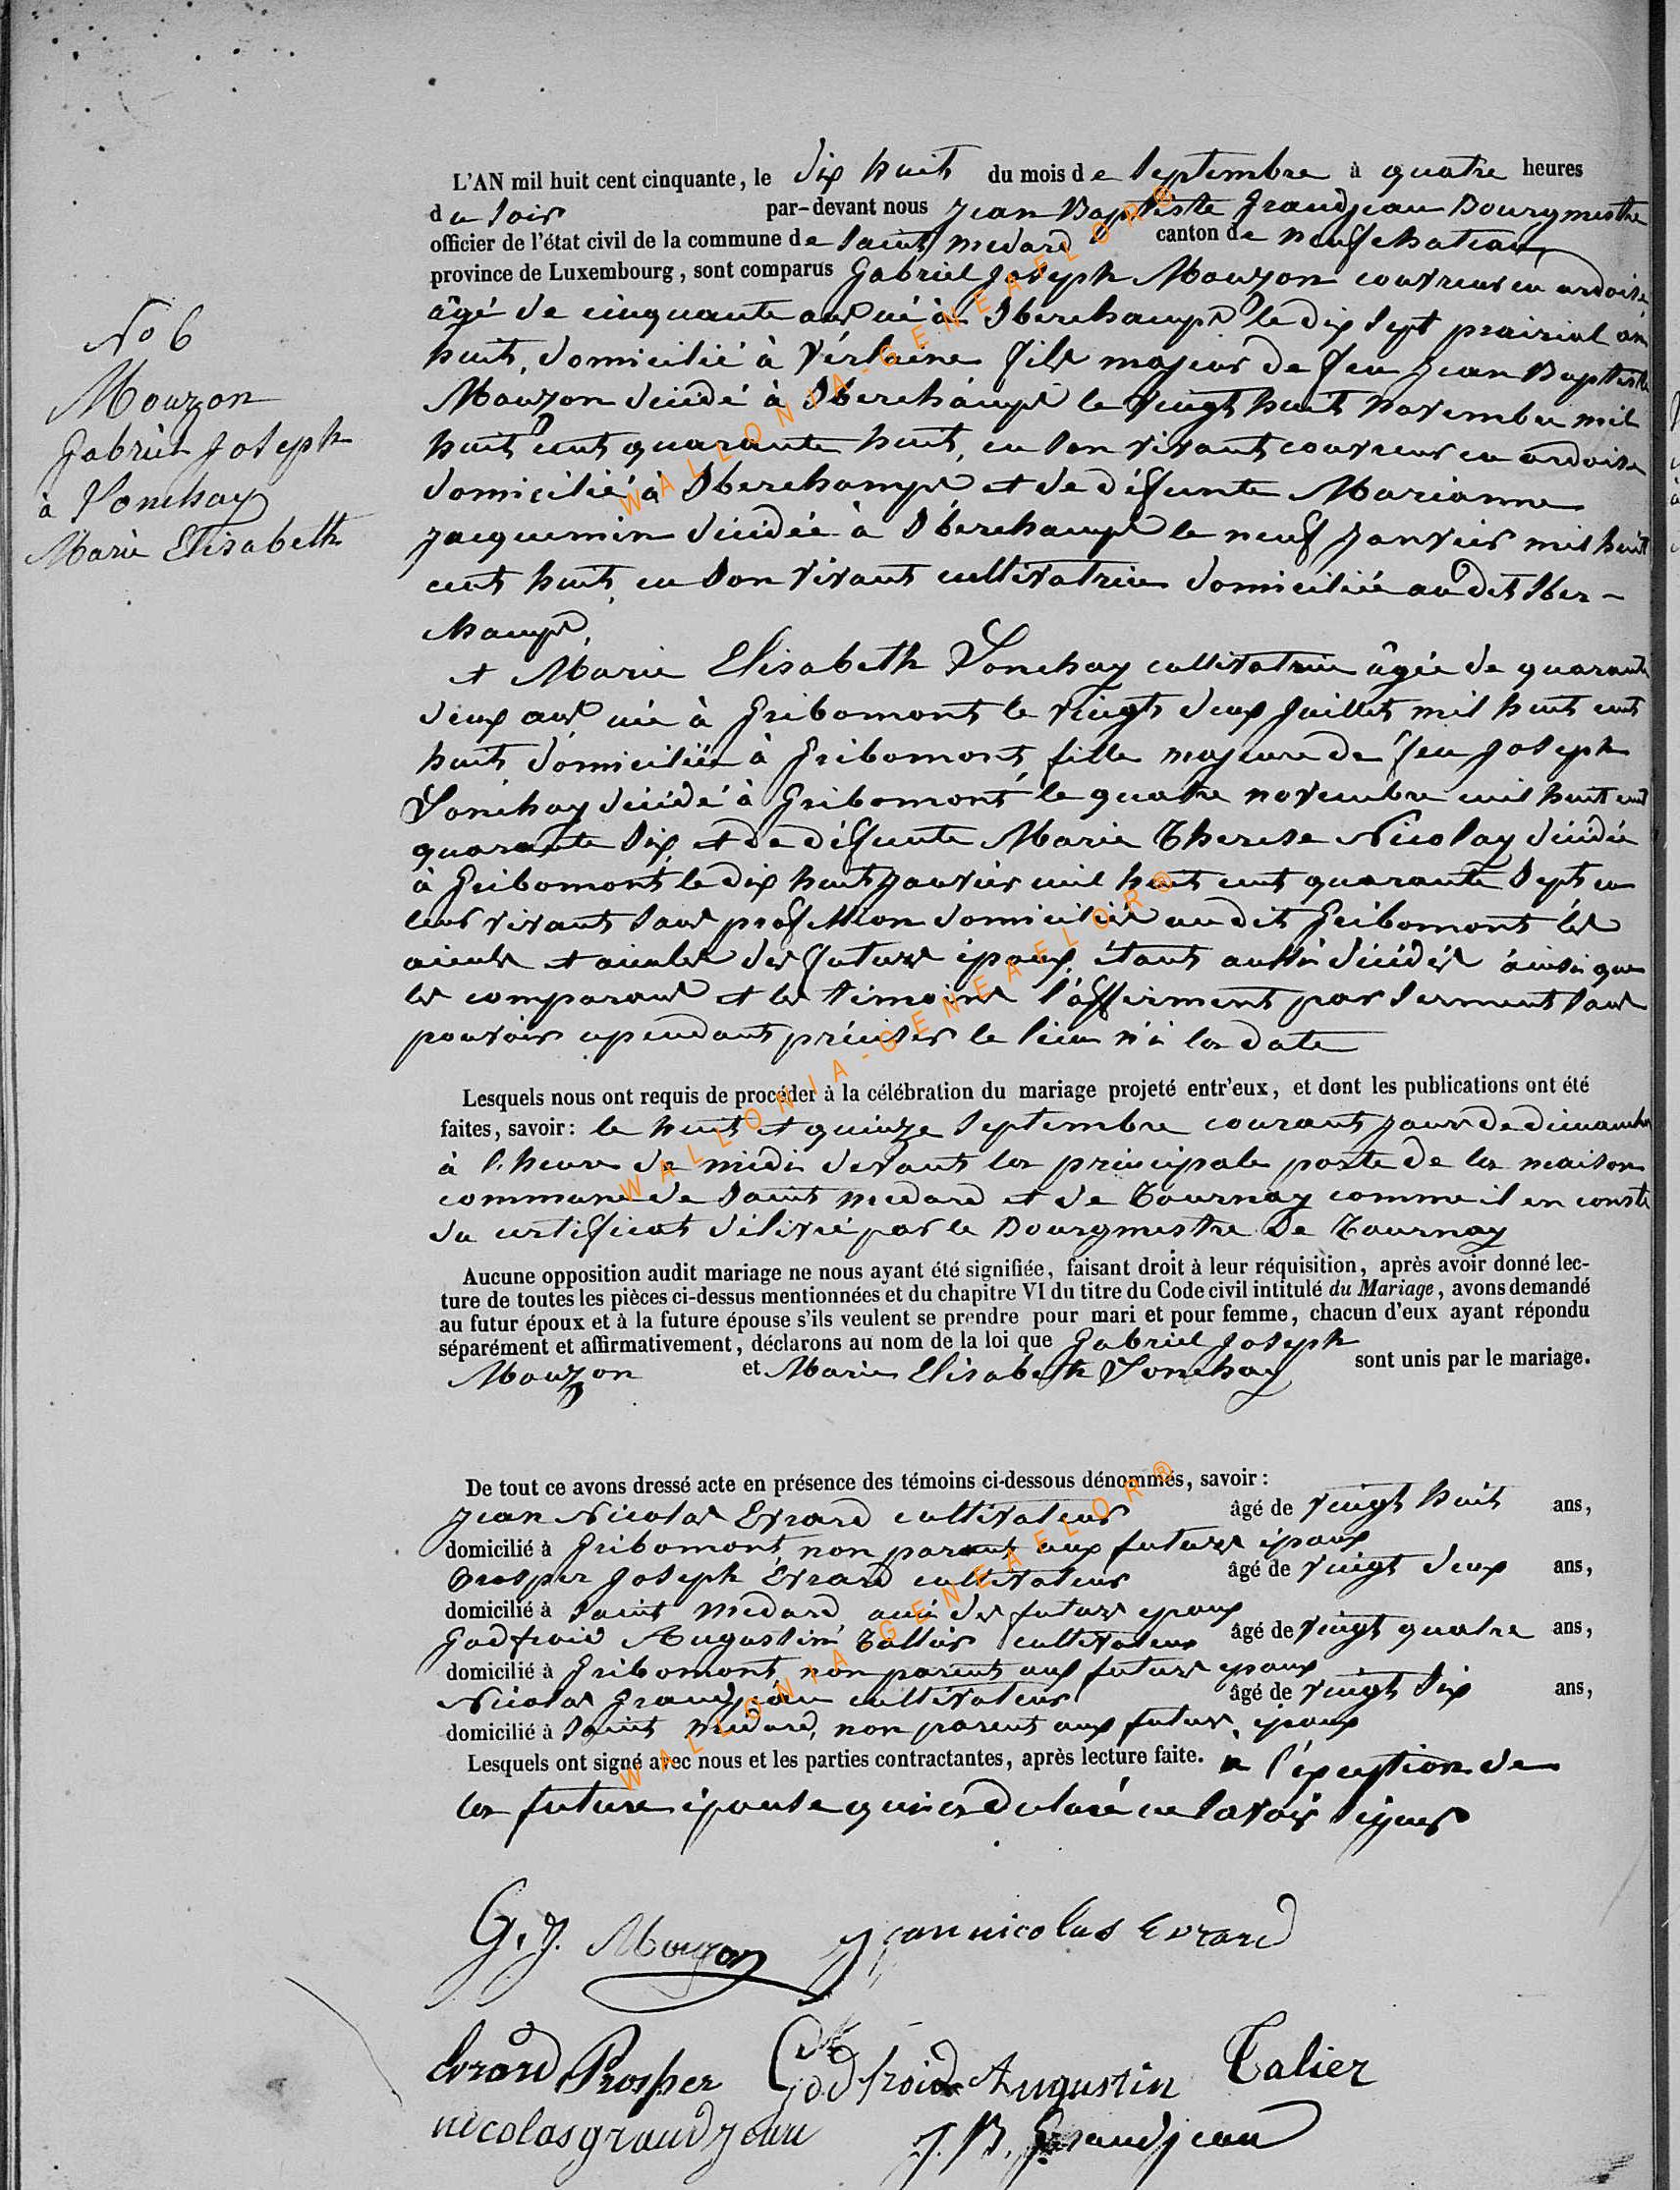 L'AN mil huit cent cinquante, le dix huit du mois de Septembre à quatre heures
du Soir par-devant nous Jean Baptiste Grandjean Bourgmestre
officier de l'état civil de la commune de Saint Medard canton de neufchateau
province de Luxembourg, sont comparus Gabriel Joseph Mouzon couvreur en ardoise
âgé de cinquante ans né à Oberchamps le dix Sept prairial an
huit, domicilié à Vérlaine fils majeur de feu Jean Baptiste
Mouzon décédé à Oberchamps le vingt huit novembre mil
huit cent quarante huit, en Son vivant couvreur en ardoise
domicilié à Oberchamps et de défunte Marianne
Jacquemin décédée à Oberchamps le neuf Janvier mil huit
cent huit, en Son vivant cultivatrice domiciliée au dit Ober-
champs,
No 6
Mouzon
Gabriel Joseph
à Ponchay
Marie Elisabeth
et Marie Elisabeth Ponchay cultivatrice âgée de quarante
deux ans née à Gribomont le vingt deux Juillet mil huit cent
huit domiciliée à Gribomont, fille majeure de feu Joseph
Ponchay décédé à Gribomont le quatre novembre mil huit cent
quarante Six et de défunte Marie Therese Nicolay décédée
à Gribomont le dix huit Janvier mil huit cent quarante Sept en
leur vivant Sans profession domiciliés au dit Gribomont les
aieuls et aieules des futurs époux étant aussi décédés ainsi que
les comparans et les témoins l'affirment par Serment Sans
pouvoir cependant préciser le lieu ni la date
Lesquels nous ont requis de procéder à la célébration du mariage projeté entr'eux, et dont les publications ont été
faites, savoir: le huit et quinze Septembre courant jour de dimanche
à l'heure de midi devant la principale porte de la maison
commune de Saint Medard et de Tournay comme il en conste
du certificat délivré par le Bourgmestre de Tournay
Aucune opposition audit mariage ne nous ayant été signifiée, faisant droit à leur réquisition, après avoir donné lec-
ture de toutes les pièces ci-dessus mentionnées et du chapitre VI du titre du Code civil intitulé du Mariage, avons demandé
au futur époux et à la future épouse s'ils veulent se prendre pour mari et pour femme, chacun d'eux ayant répondu
séparément et affirmativement, déclarons au nom de la loi que Gabriel Joseph
Mouzon et Marie Elisabeth Ponchay sont unis par le mariage.
De tout ce avons dressé acte en présence des témoins ci-dessous dénommés, savoir:
Jean Nicolas Evrard cultivateur âgé de vingt huit ans,
domicilié à Gribomont non parent aux futurs époux
Prosper Joseph Evrard cultivateur âgé de vingt deux ans,
domicilié à Saint Medard ami des futurs époux
Godfroid Augustin Tallier cultivateur âgé de vingt quatre ans,
domicilié à Gribomont non parent aux futurs époux
Nicolas Grandjean cultivateur âgé de vingt Six ans,
domicilié à Saint Medard, non parent aux futurs époux
Lesquels ont signé avec nous et les parties contractantes, après lecture faite. à l'exception de
la future épouse qui a déclaré ne Savoir Signer
G. J. Mouzon Jean nicolas Evrard
Evrard Prosper Godfroid Augustin Talier
nicolas grandjean J. B. Grandjean
WALLONIA-GENEAFLOR®
WALLONIA-GENEAFLOR®
WALLONIA-GENEAFLOR®